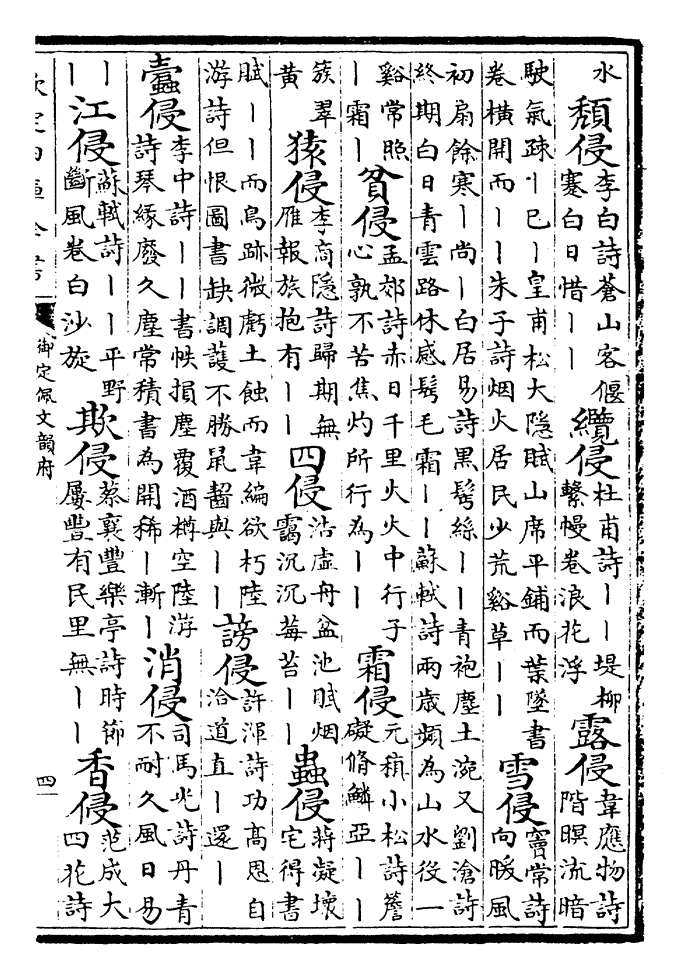 水
頹侵李白詩蒼山客偃
蹇白日惜丨丨
纜侵杜甫詩丨丨堤柳
繫幔卷浪花浮
露侵韋應物詩
階暝流暗
駛氣疎丨巳丨皇甫松大隱賦山席平鋪而葉墜書
卷橫開而丨丨朱子詩烟火居民少荒谿草丨丨
雪侵竇常詩
向暖風
初扇餘寒丨尚丨白居易詩黑鬢絲丨丨青袍塵土涴又劉滄詩
終期白日青雲路休感鬢毛霜丨丨蘇軾詩兩歲頻為山水役一
谿常照
丨霜丨
貧侵孟郊詩赤日千里火火中行子
心孰不苦焦灼所行為丨丨
霜侵元稹小松詩簷
礙脩鱗亞丨丨
簇翠
黃
猿侵李商隱詩歸期無
雁報旅抱有丨丨
四侵沾虛舟盆池賦烟
靄沉沉莓苔丨丨
蟲侵蔣凝壞
宅得書
賦丨丨而鳥跡微虧土蝕而韋編欲朽陸
游詩但恨圖書缺調護不勝鼠齧與丨丨
謗侵許渾詩功高恩自
洽道直丨還丨
蠹侵李中詩丨丨書帙損塵覆酒樽空陸游
詩琴緣廢久塵常積書為開稀丨漸丨
消侵司馬光詩丹青
不耐久風日易
丨
丨
江侵蘇軾詩丨丨平野
斷風卷白沙旋
欺侵蔡襄豐樂亭詩時節
屢豐有民里無丨丨
香侵范成大
四花詩
欽定四庫全書
御定佩文韻府
四